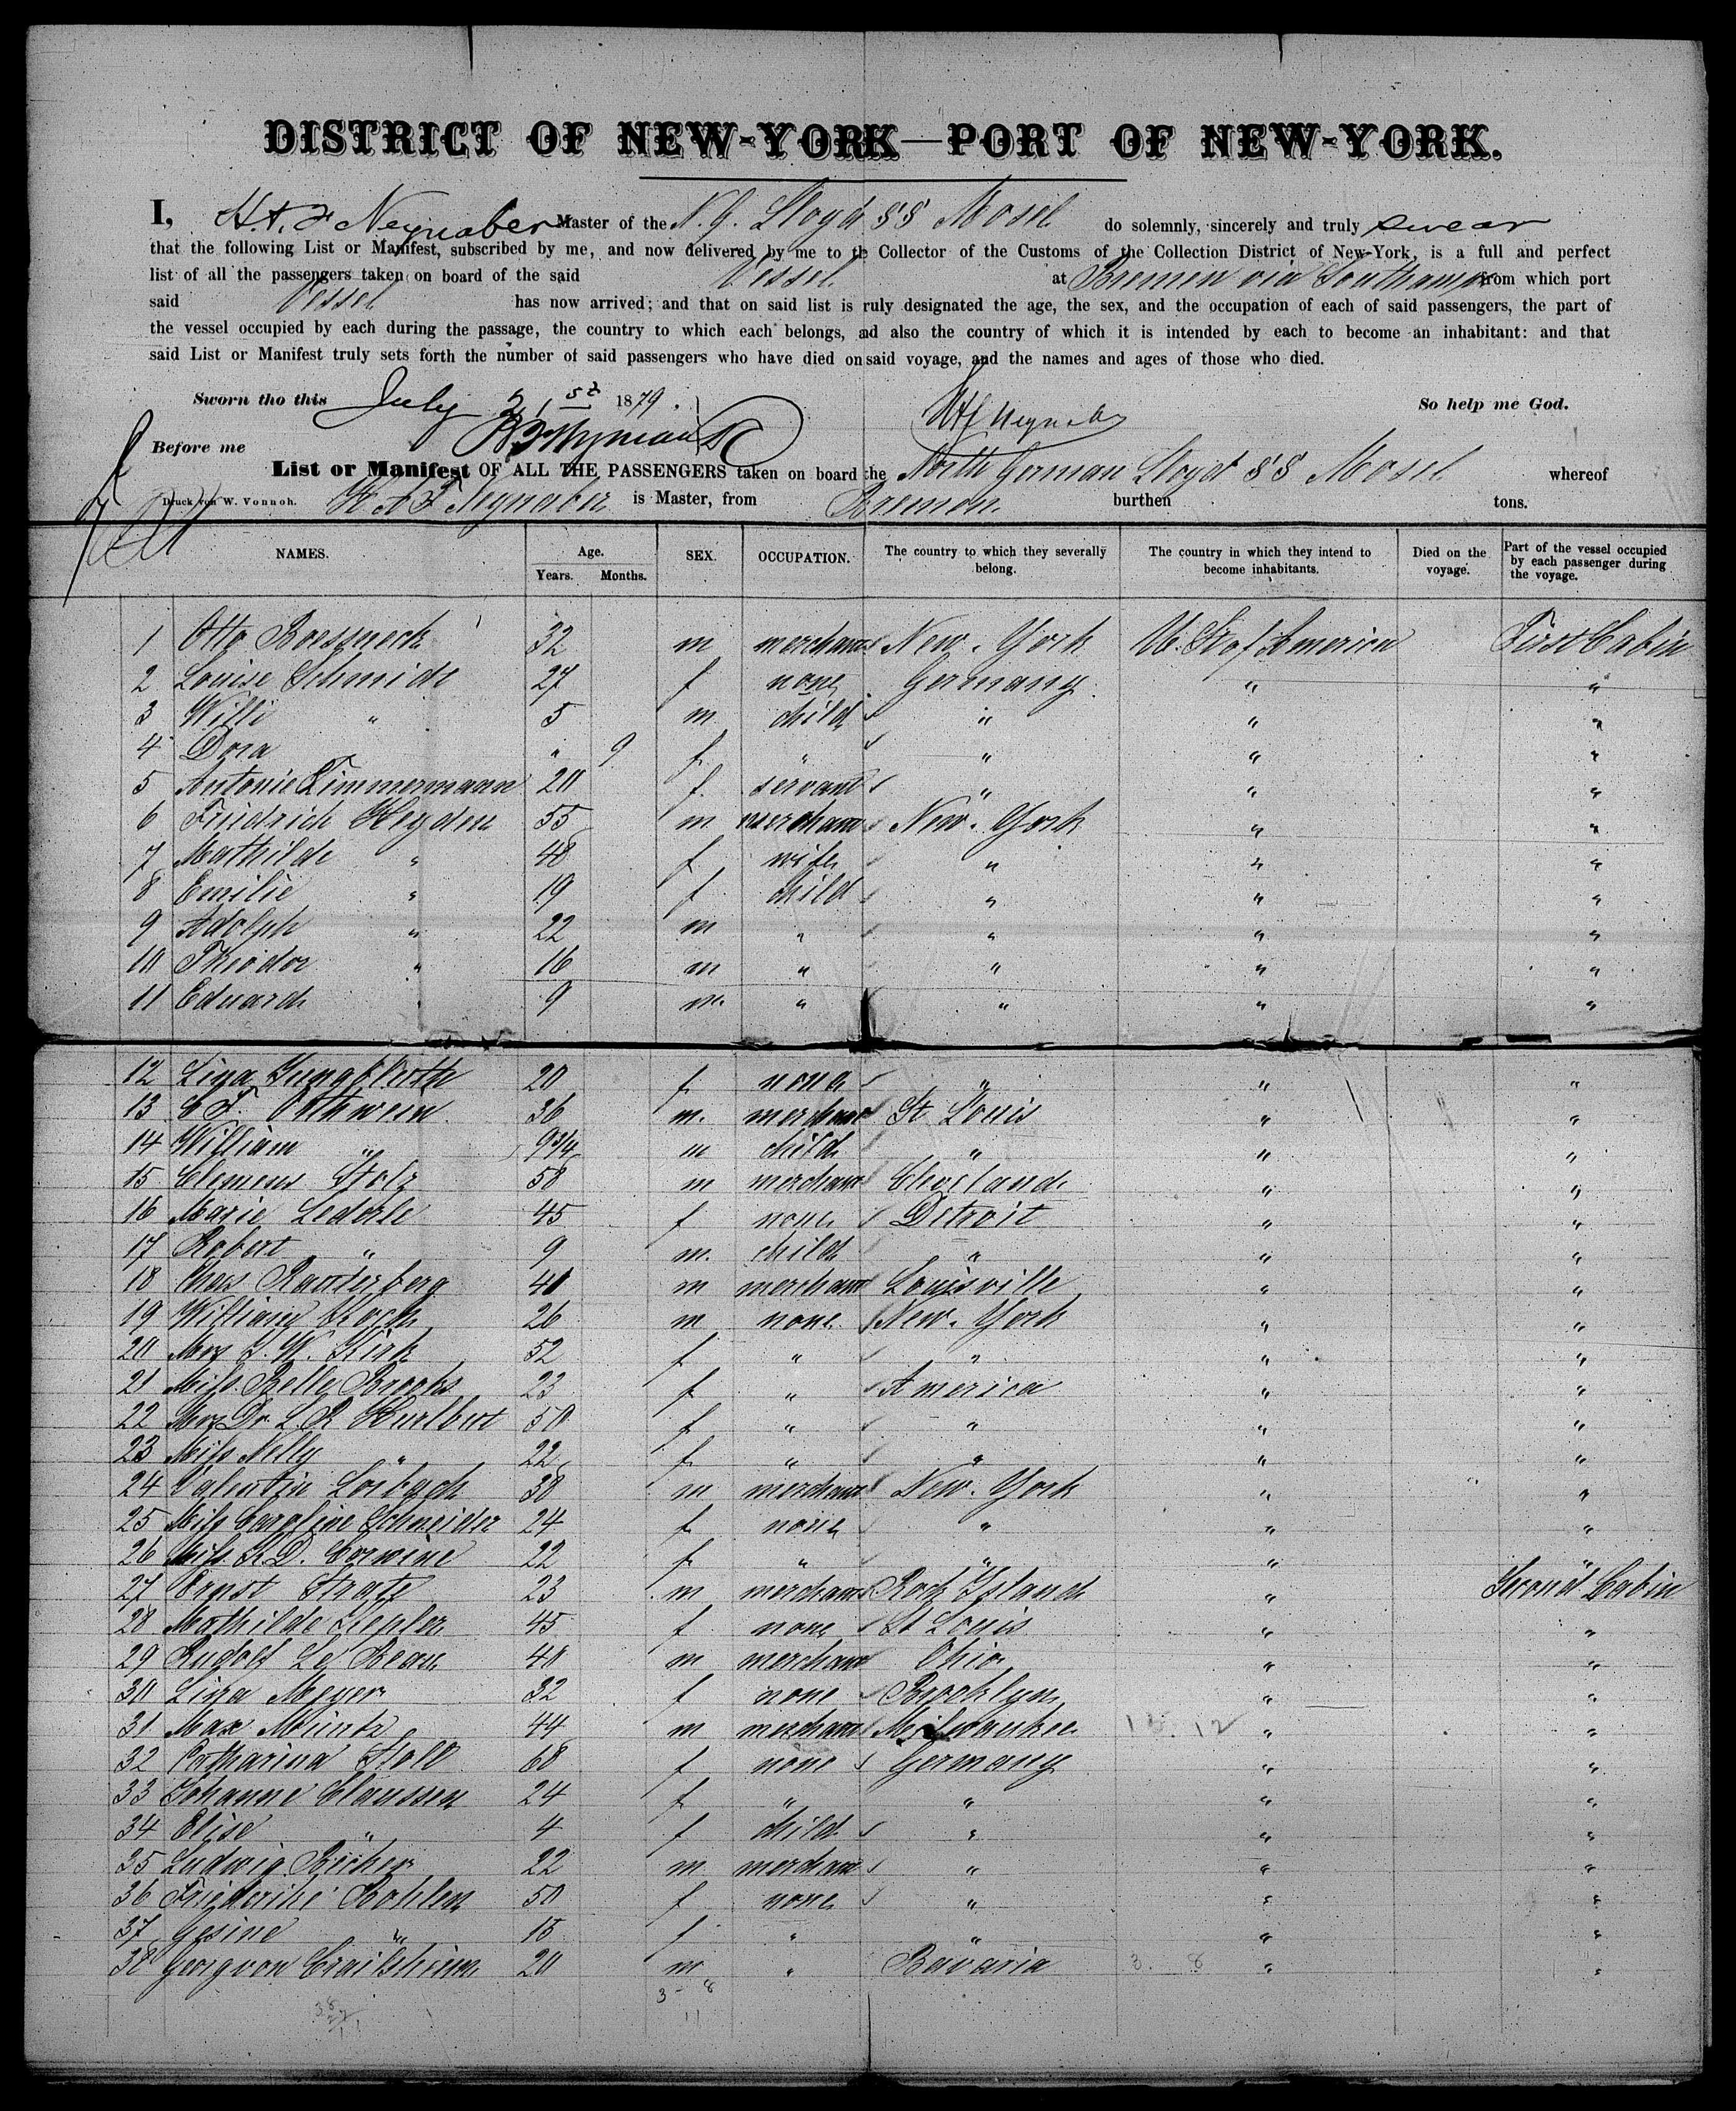 DISTRICT OF NEW-YORK—PORT OF NEW-YORK.
I, H.A.F. Neynaber Master of the N. G. Lloyd SS Mosel do solemnly, sincerely and truly swear
that the following List or Manifest, subscribed by me, and now delivered by me to the Collector of the Customs of the Collection District of New-York, is a full and perfect
list of all the passengers taken on board of the said Vessel at Bremen via Southampt from which port
said Vessel has now arrived; and that on said list is ruly designated the age, the sex, and the occupation of each of said passengers, the part of
the vessel occupied by each during the passage, the country to which each belongs, ad also the country of which it is intended by each to become an inhabitant: and that
said List or Manifest truly sets forth the number of said passengers who have died on said voyage, and the names and ages of those who died.
Sworn tho this July 21st 1879. So help me God.
Before me HF Neynaber
List or Manifest OF ALL THE PASSENGERS taken on board the North German Lloyd SS Mosel whereof
Druck von W. Vonnoh. H A F Neynaber is Master, from Bremen burthen tons.
NAMES. Age. Years. Months. SEX. OCCUPATION. The country to which they severally belong. The country in which they intend to become inhabitants. Died on the voyage. Part of the vessel occupied by each passenger during the voyage.
1 Otto Roessneck 32 m merchant New-York U. St of America First Cabin
2 Louise Schmidt 27 f none Germany " "
3 Willi " 5 m child " " "
4 Dora " 9 f " " " "
5 Antonie Zimmermann 20 f. servant " " "
6 Friedrich Heyden 55 m merchant New-York " "
7 Mathilde " 48 f wife " " "
8 Emilie " 19 f child " " "
9 Adolph " 22 m " " " "
10 Theodor " 16 m " " " "
11 Eduard " 9 m. " " " "
12 Lina Jungbluth 20 f none " " "
13 C F. Orthwein 36 m. merchant St Louis " "
14 William " 9 3/4 m child " " "
15 Clemens Stolz 58 m merchant Cleveland " "
16 Marie Lederle 45 f none Detroit " "
17 Robert " 9 m. child " " "
18 Chas Rauterberg 40 m merchant Louisville " "
19 William Koch 26 m none New-York " "
20 Mrs J. W. Kirk 52 f " " " "
21 Miss Belle Brooks 23 f " America " "
22 Mrs Dr. L. R Hurlbut 50 f " " " "
23 Miss Nelly " 22 f " " " "
24 Valentin Loibach 38 m merchant New-York " "
25 Miss Caroline Schneider 24 f none " " "
26 Miss K. D. Corwine 22 f " " " "
27 Ernst Stratz 23 m merchant Rock Island " Second Cabin
28 Mathilde Kepler 45 f none St Louis " "
29 Rudolf Le Beau 40 m merchant Ohio " "
30 Lina Meyer 32 f none Brooklyn " "
31 Max Müntz 44 m merchant Milwaukee " "
32 Catharina Stoll 68 f none Germany " "
33 Johanne Claussen 24 f " " " "
34 Elise " 4 f child " " "
35 Ludwig Becker 22 m merchant " " "
36 Friederike Bohlen 50 f none " " "
37 Gesine " 15 f " " " "
38 Georg von Crailsheim 20 m " Bavaria 3. 8 " "
3 - 8
11